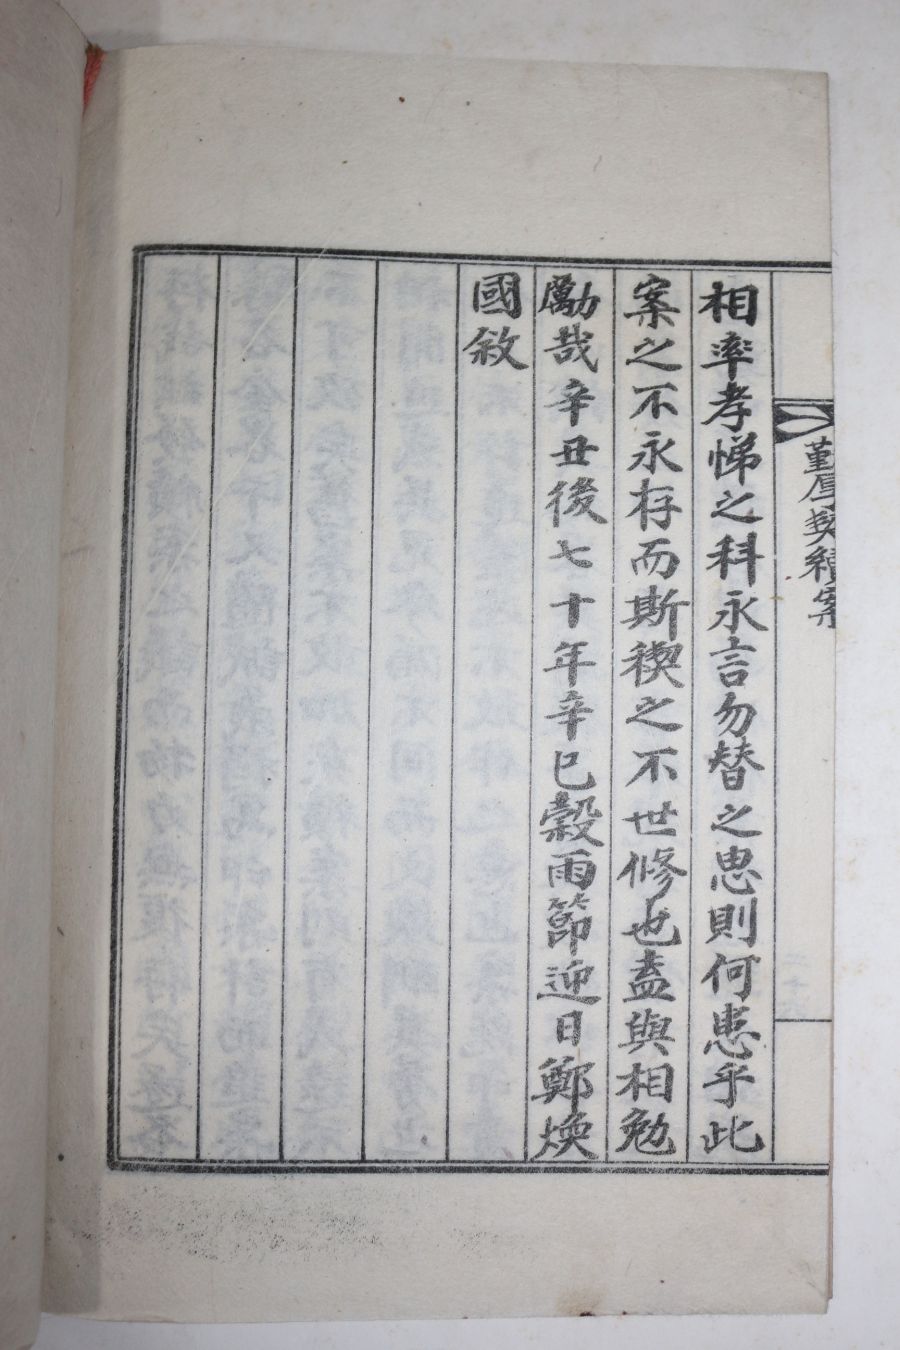 勤厚契續案
相率孝悌之科永言勿替之思則何患乎此
案之不永存而斯稧之不世修也盍與相勉
勵哉辛丑後七十年辛巳穀雨節迎日鄭煥
國敘